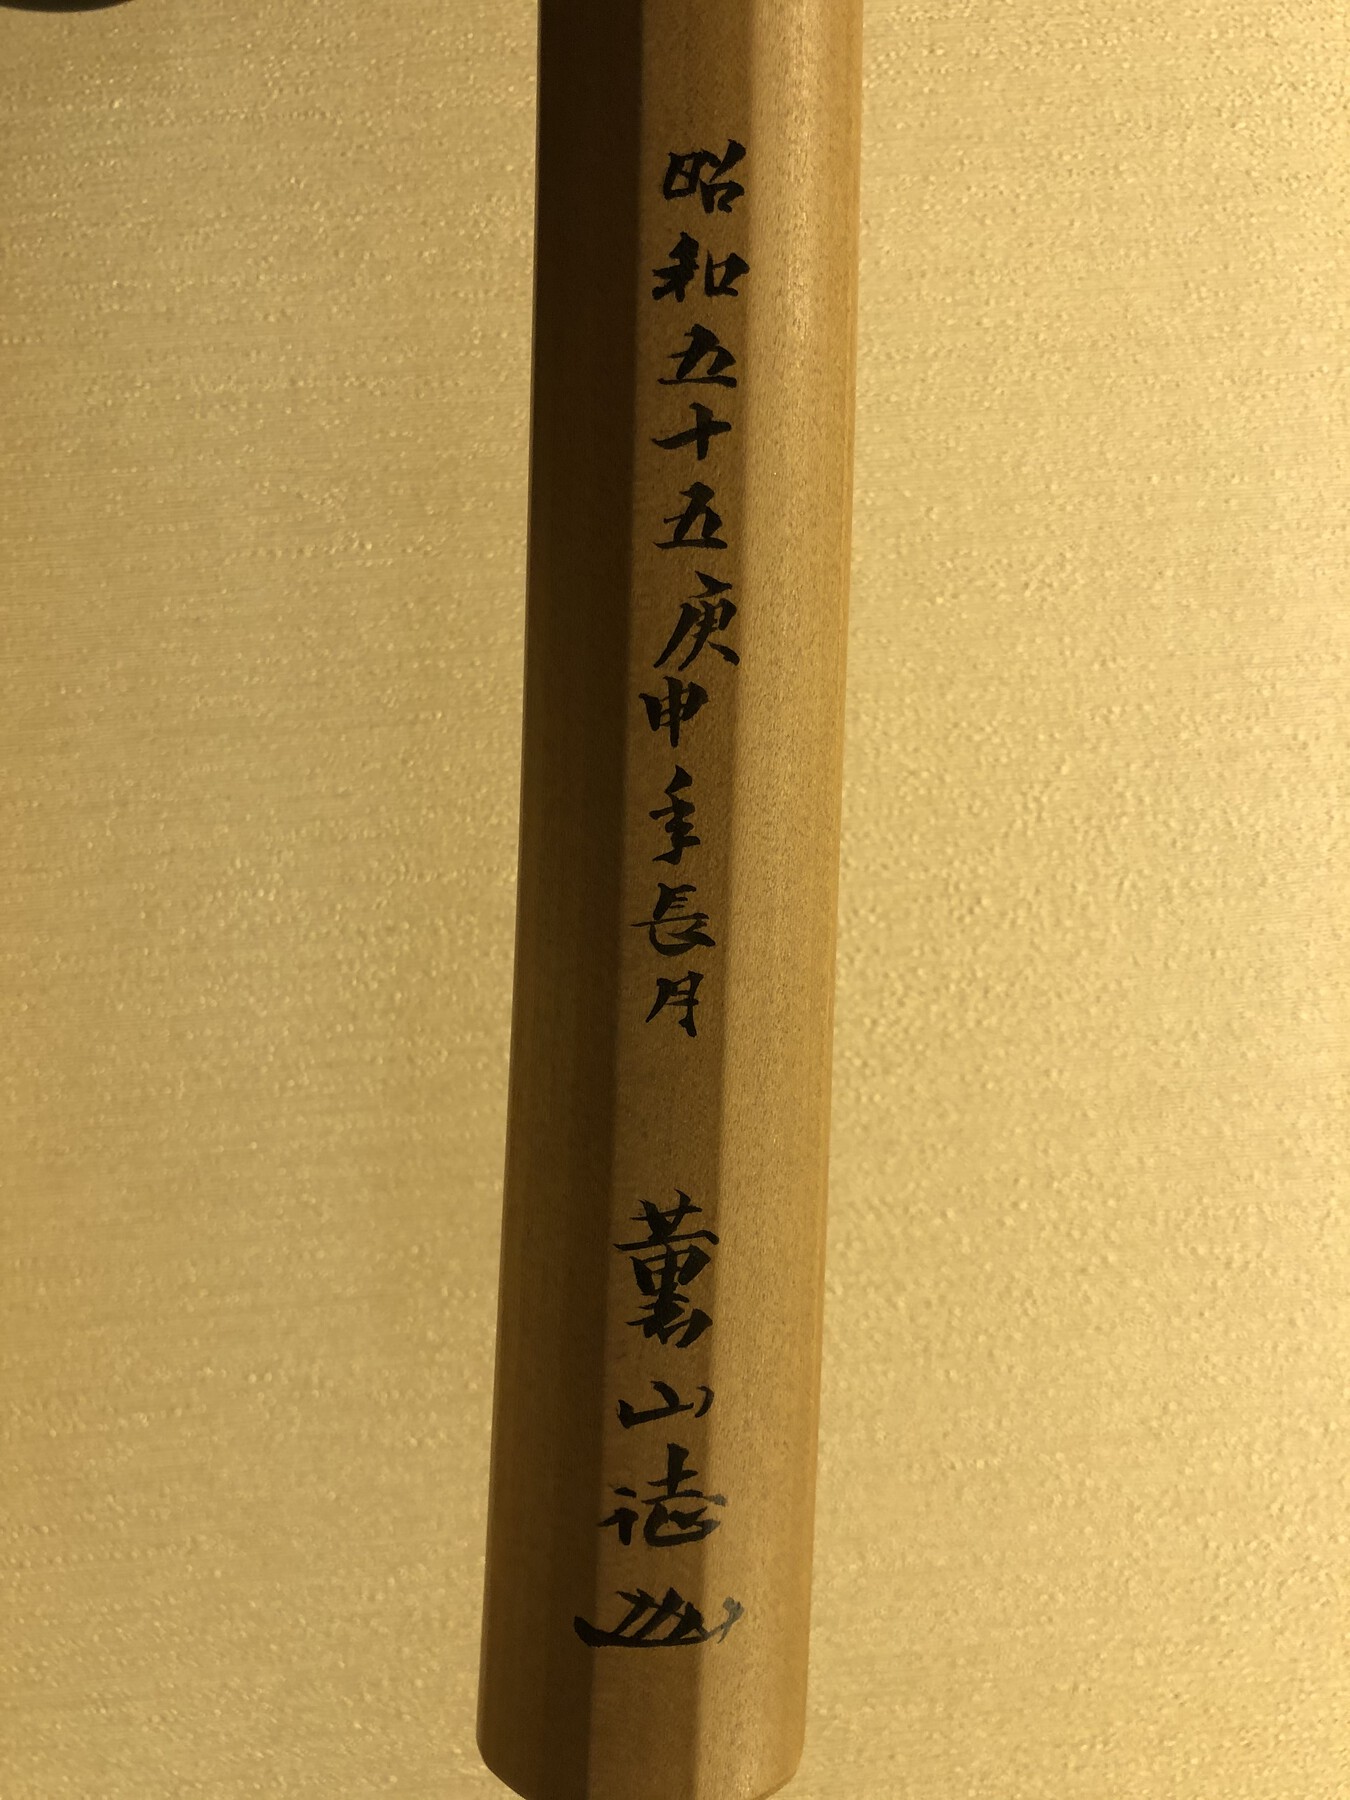 昭和五十五庚申年長月 薫山誌